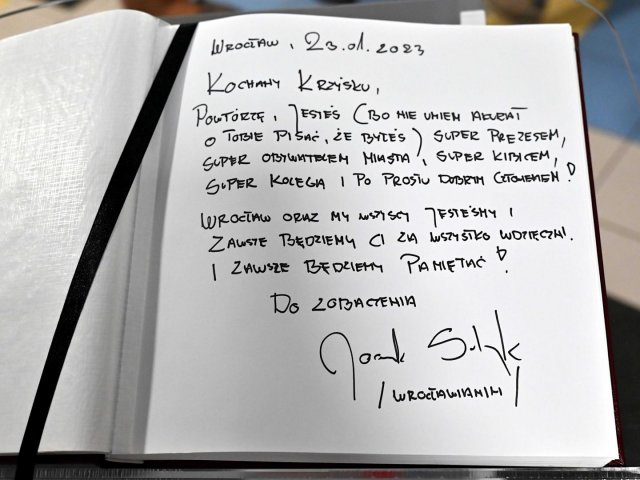 Wrocław, 23.01.2023
Kochany Krzyśku,
Powtórzę, jesteś (bo nie umiem akurat
o Tobie pisać, że byłeś) super prezesem,
super obywatelem miasta, super kibicem,
super kolegą i po prostu dobrym człowiekiem!
Wrocław oraz my wszyscy jesteśmy i
zawsze będziemy Ci za wszystko wdzięczni.
I zawsze będziemy pamiętać!
Do zobaczenia
Jacek Sutryk
/Wrocławianin/